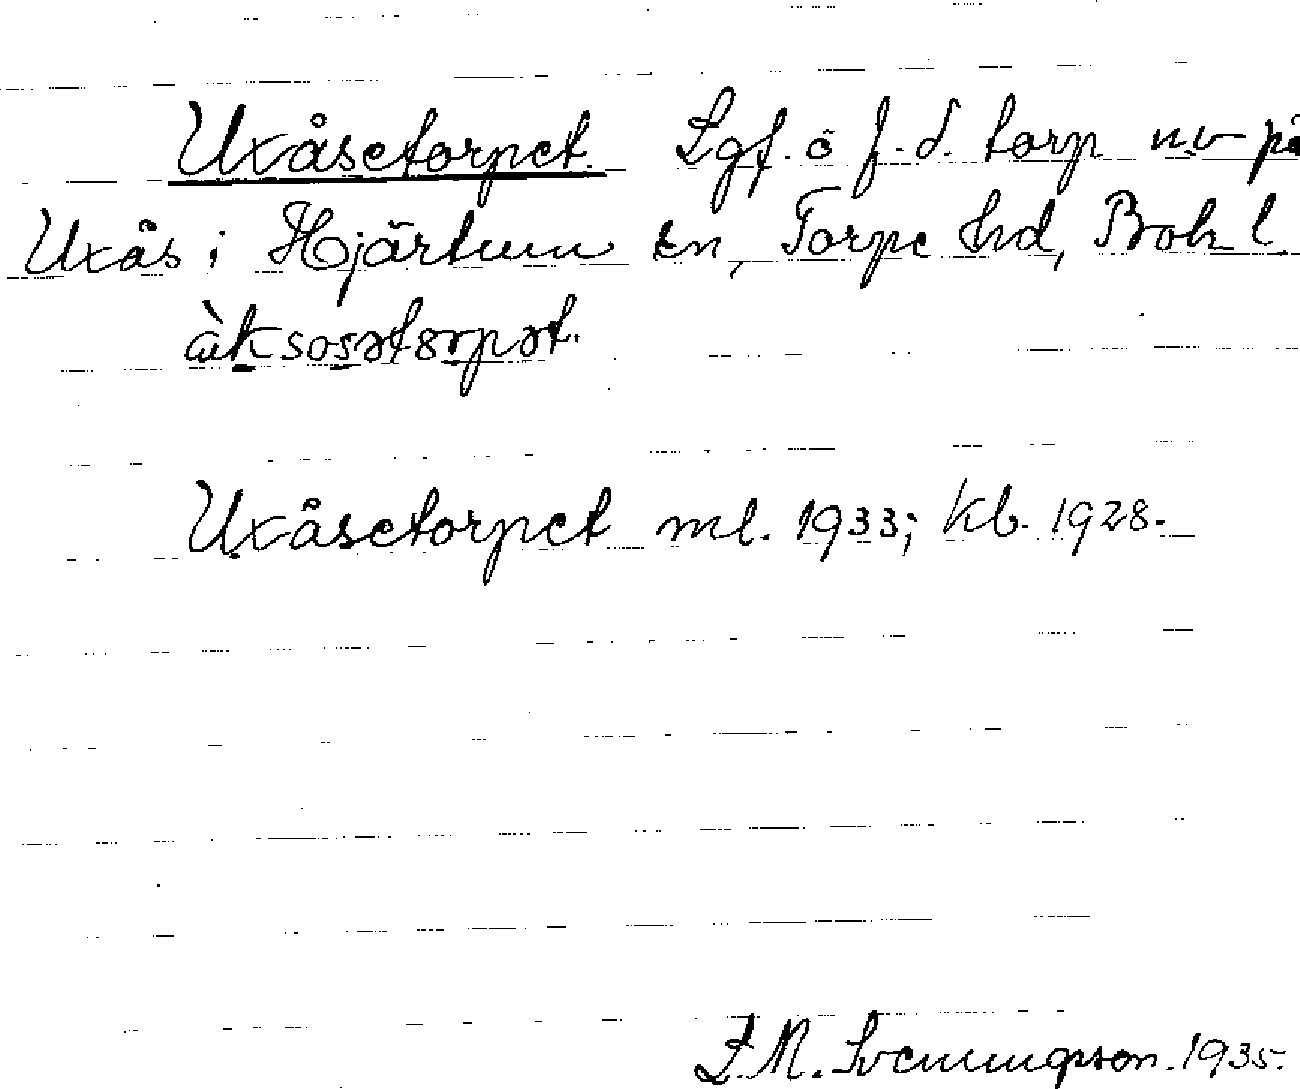 Uxåsetorpet. Lgf. o f.d. torp n.v på
Uxås i Hjärtum sn, Torpe hd, Boh l
ùksosətorpət.
Uxåsetorpet ml. 1933; kb. 1928.
F. M. Svenungsson. 1935.